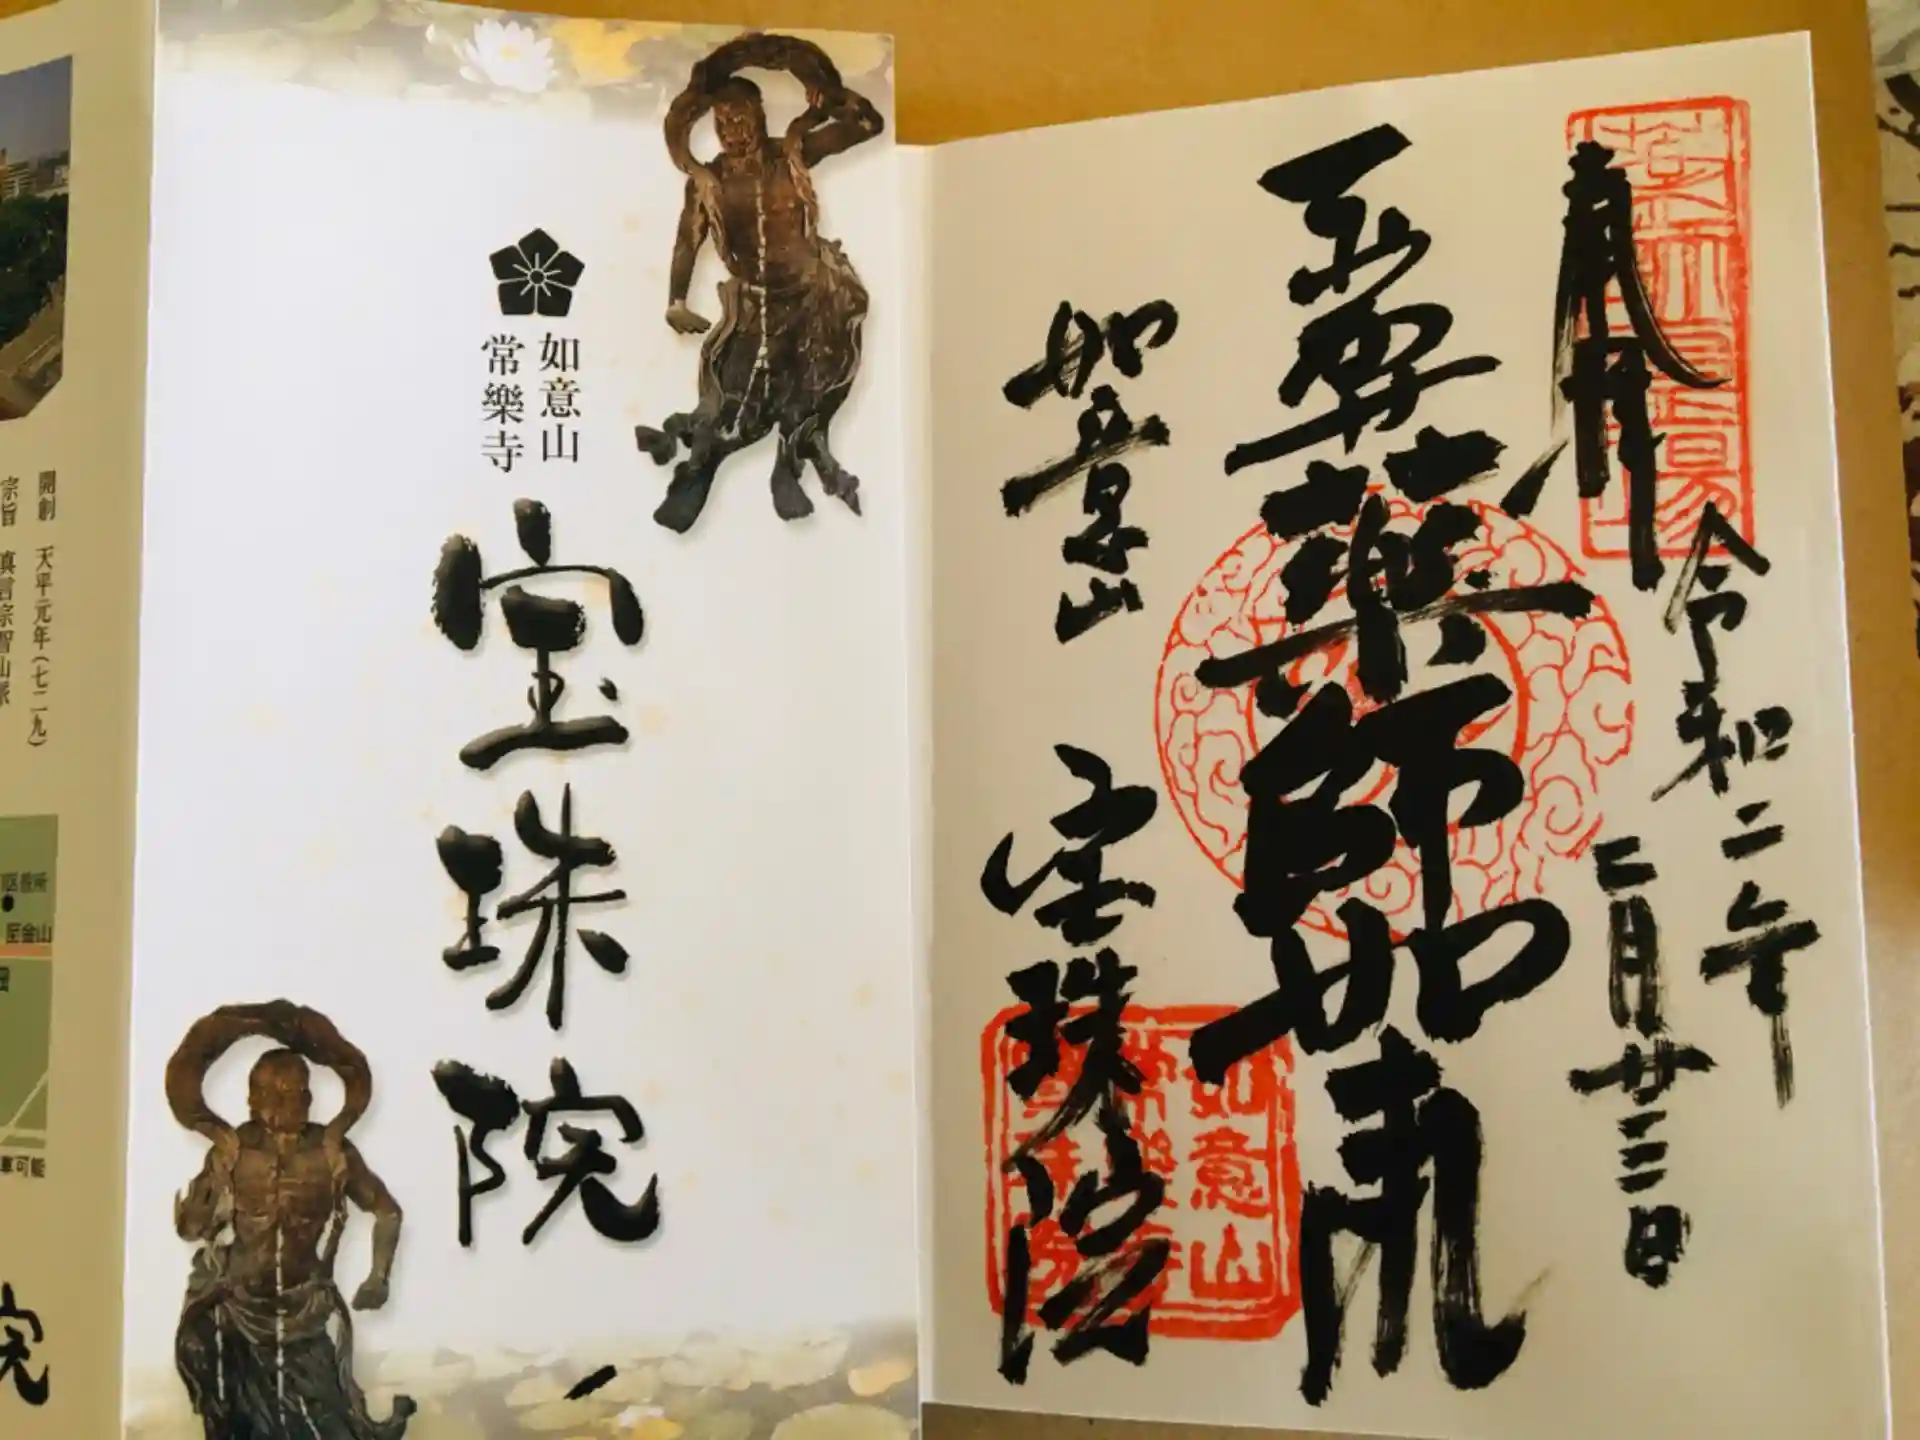 如意山
常樂寺
宝珠院
開創 天平元年(七二九)
宗旨 真言宗智山派
至金山
車可能
院
奉拝
令和二年
二月廿三日
本尊薬師如来
如意山
宝珠院
如意山